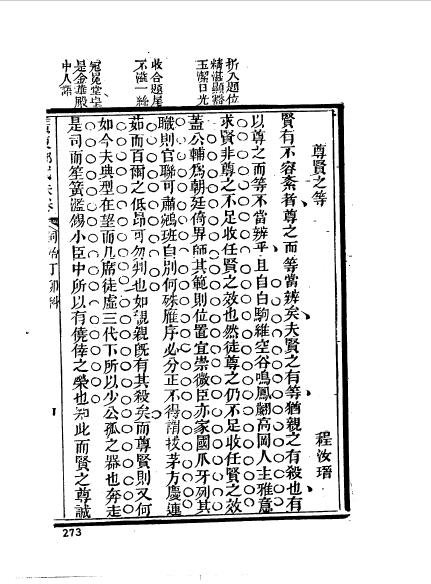 折入題位
精湛顯豁
玉潔日光
收合題尾
不溢一絲
冠冕堂皇
是金鑾殿
中人語
尊賢之等
程汝
賢有不容紊者尊之而等當辨矣夫賢之有等猶親之有殺也有
以尊之而等不當辨乎且自白駒維空谷鳴鳳翽高岡人主雅意
求賢非尊之不足收任賢之效也然徒尊之仍不足收任賢之效
蓋公輔爲朝廷倚畀師其範則位置宜崇微臣亦家國爪牙列其
職則官聯可肅鵷班自別何殊雁序必分正不得謂拔茅方慶連
茹而百爾之低昂可勿判也如親親旣有其殺矣而尊賢則又何
如今夫典型在望而几席徒虛三代下所以少公孤之器也奔走
是司而笙簧濫錫小臣中所以有僥倖之榮也知此而賢之尊誠
同治丁卯科
273